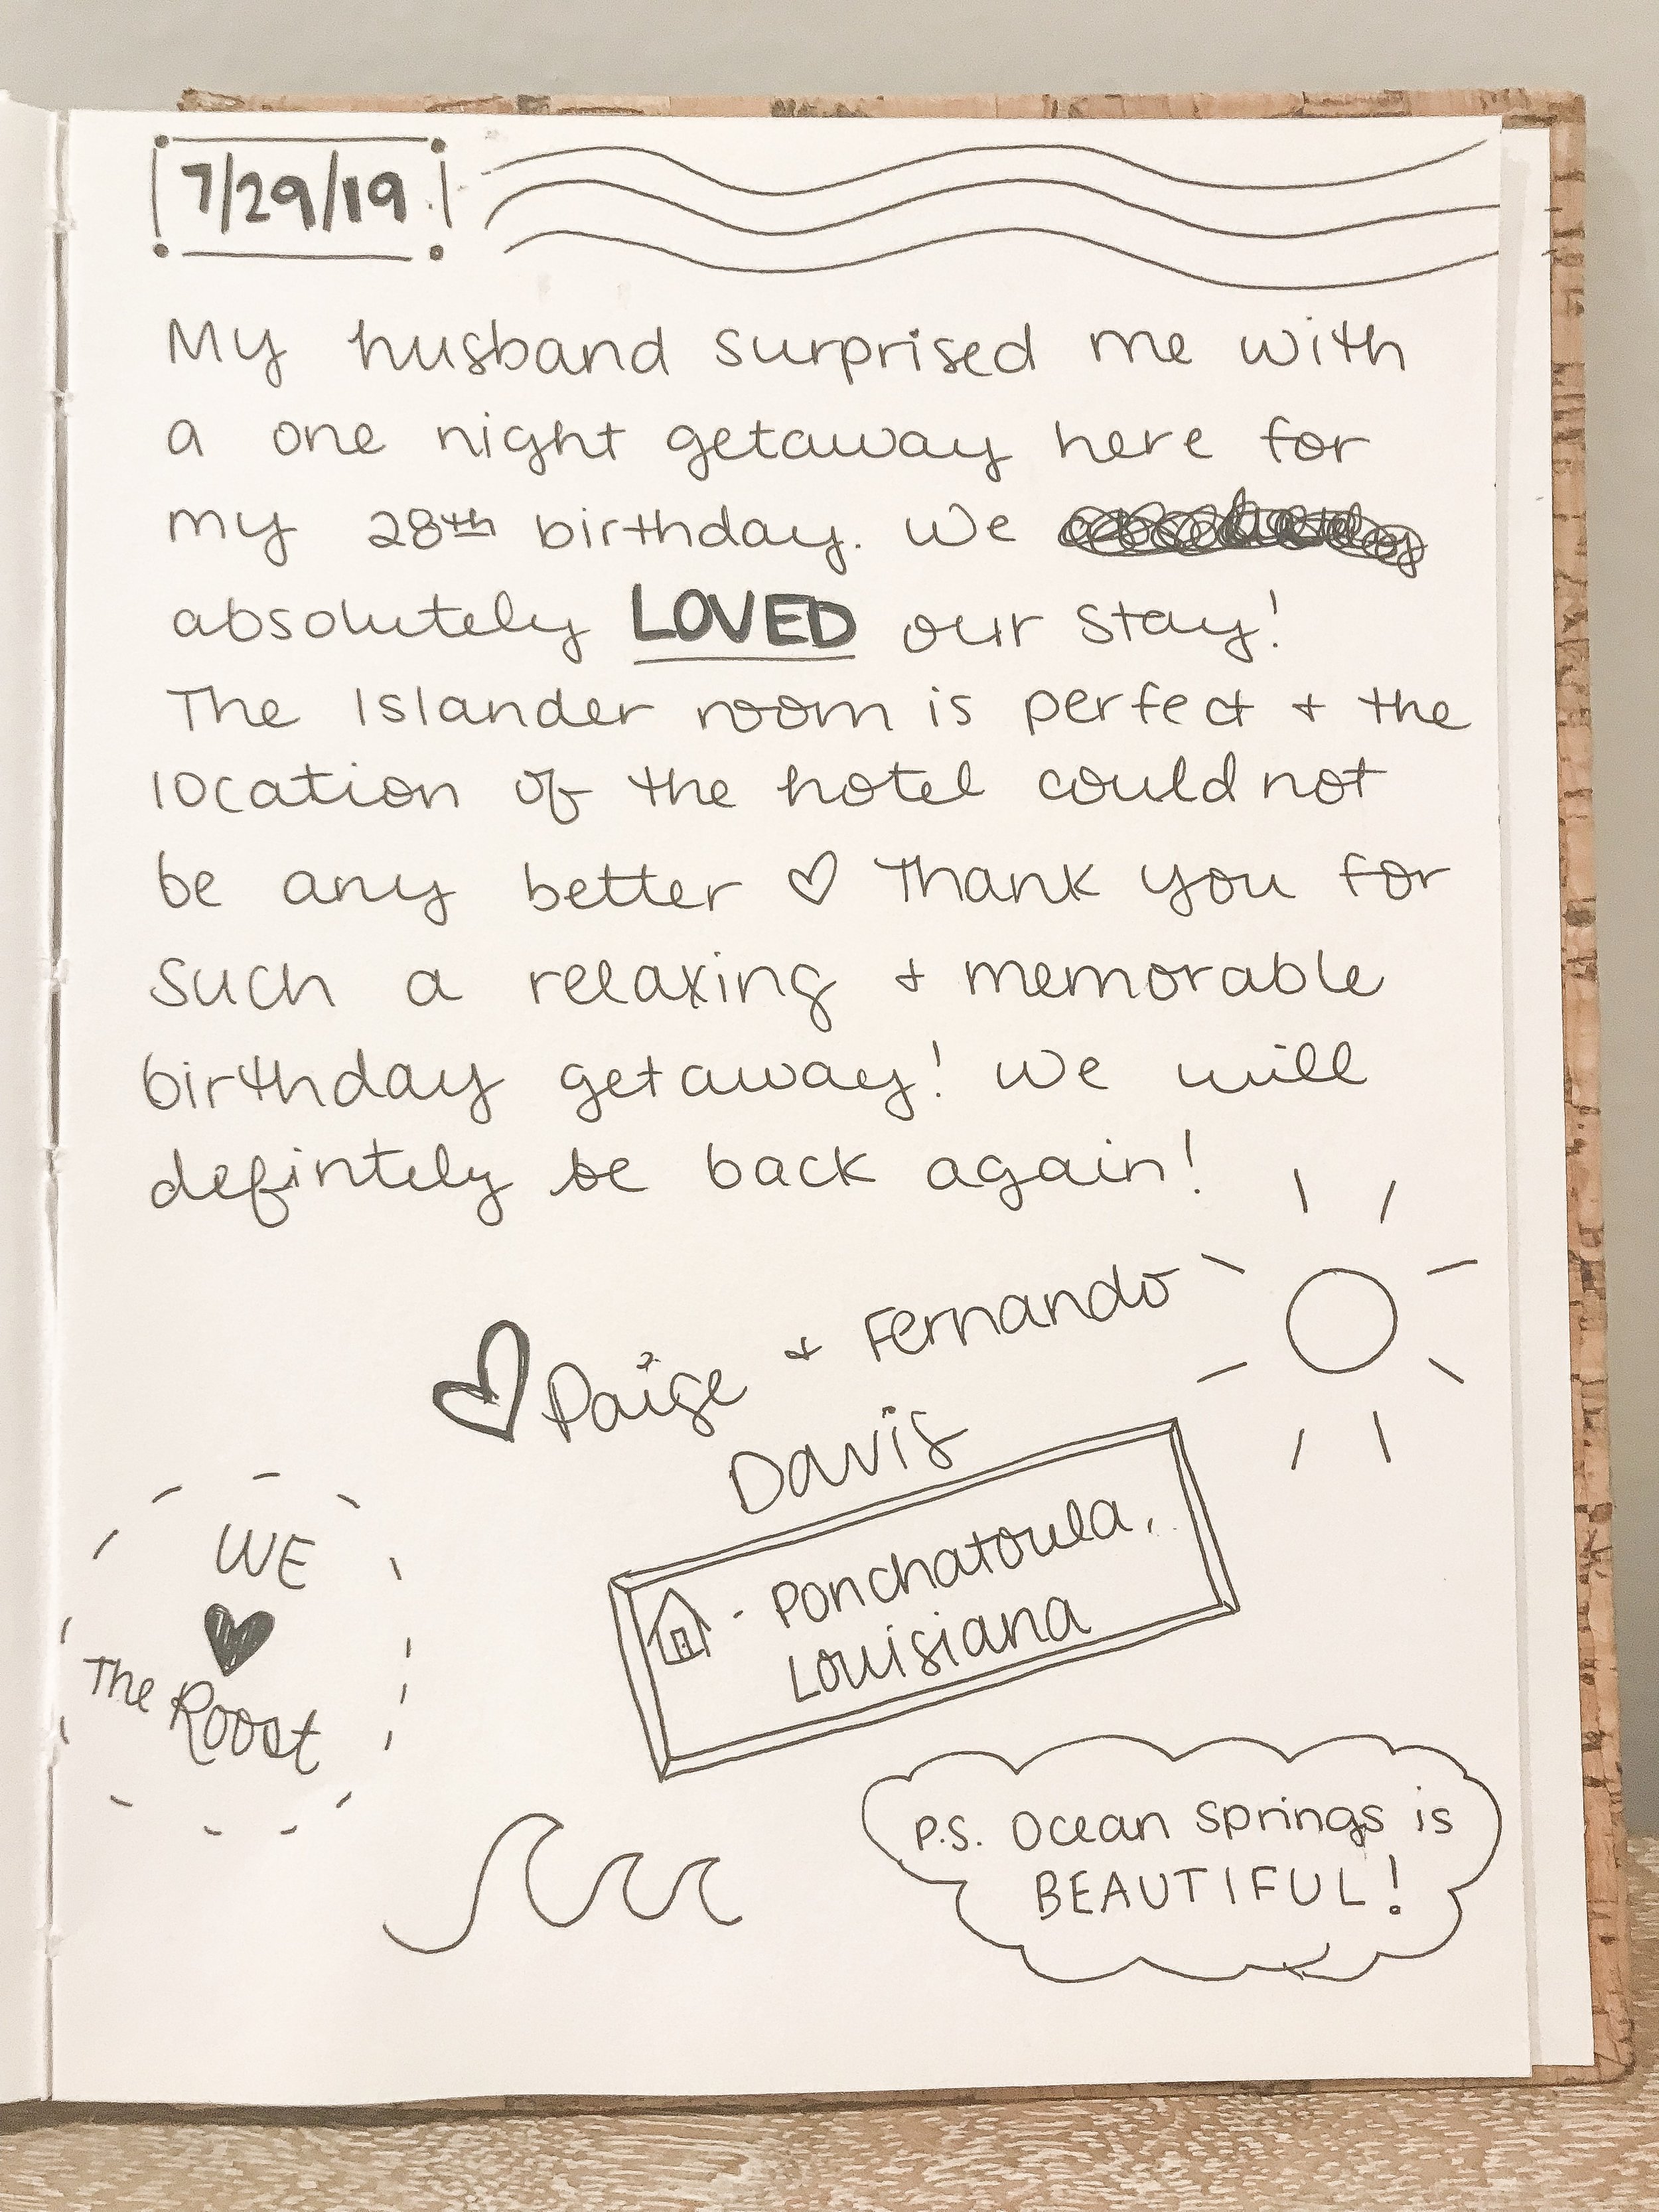 7/29/19
My husband surprised me with
a one night getaway here for
my 28th birthday. We
absolutely LOVED our stay!
The Islander room is perfect + the
location of the hotel could not
be any better ♡ Thank you for
such a relaxing + memorable
birthday getaway! We will
defintely be back again!
♡ Paige + Fernando
Davis
- Ponchatoula,
Louisiana
WE
♥
The Roost
P.S. Ocean Springs is
BEAUTIFUL!